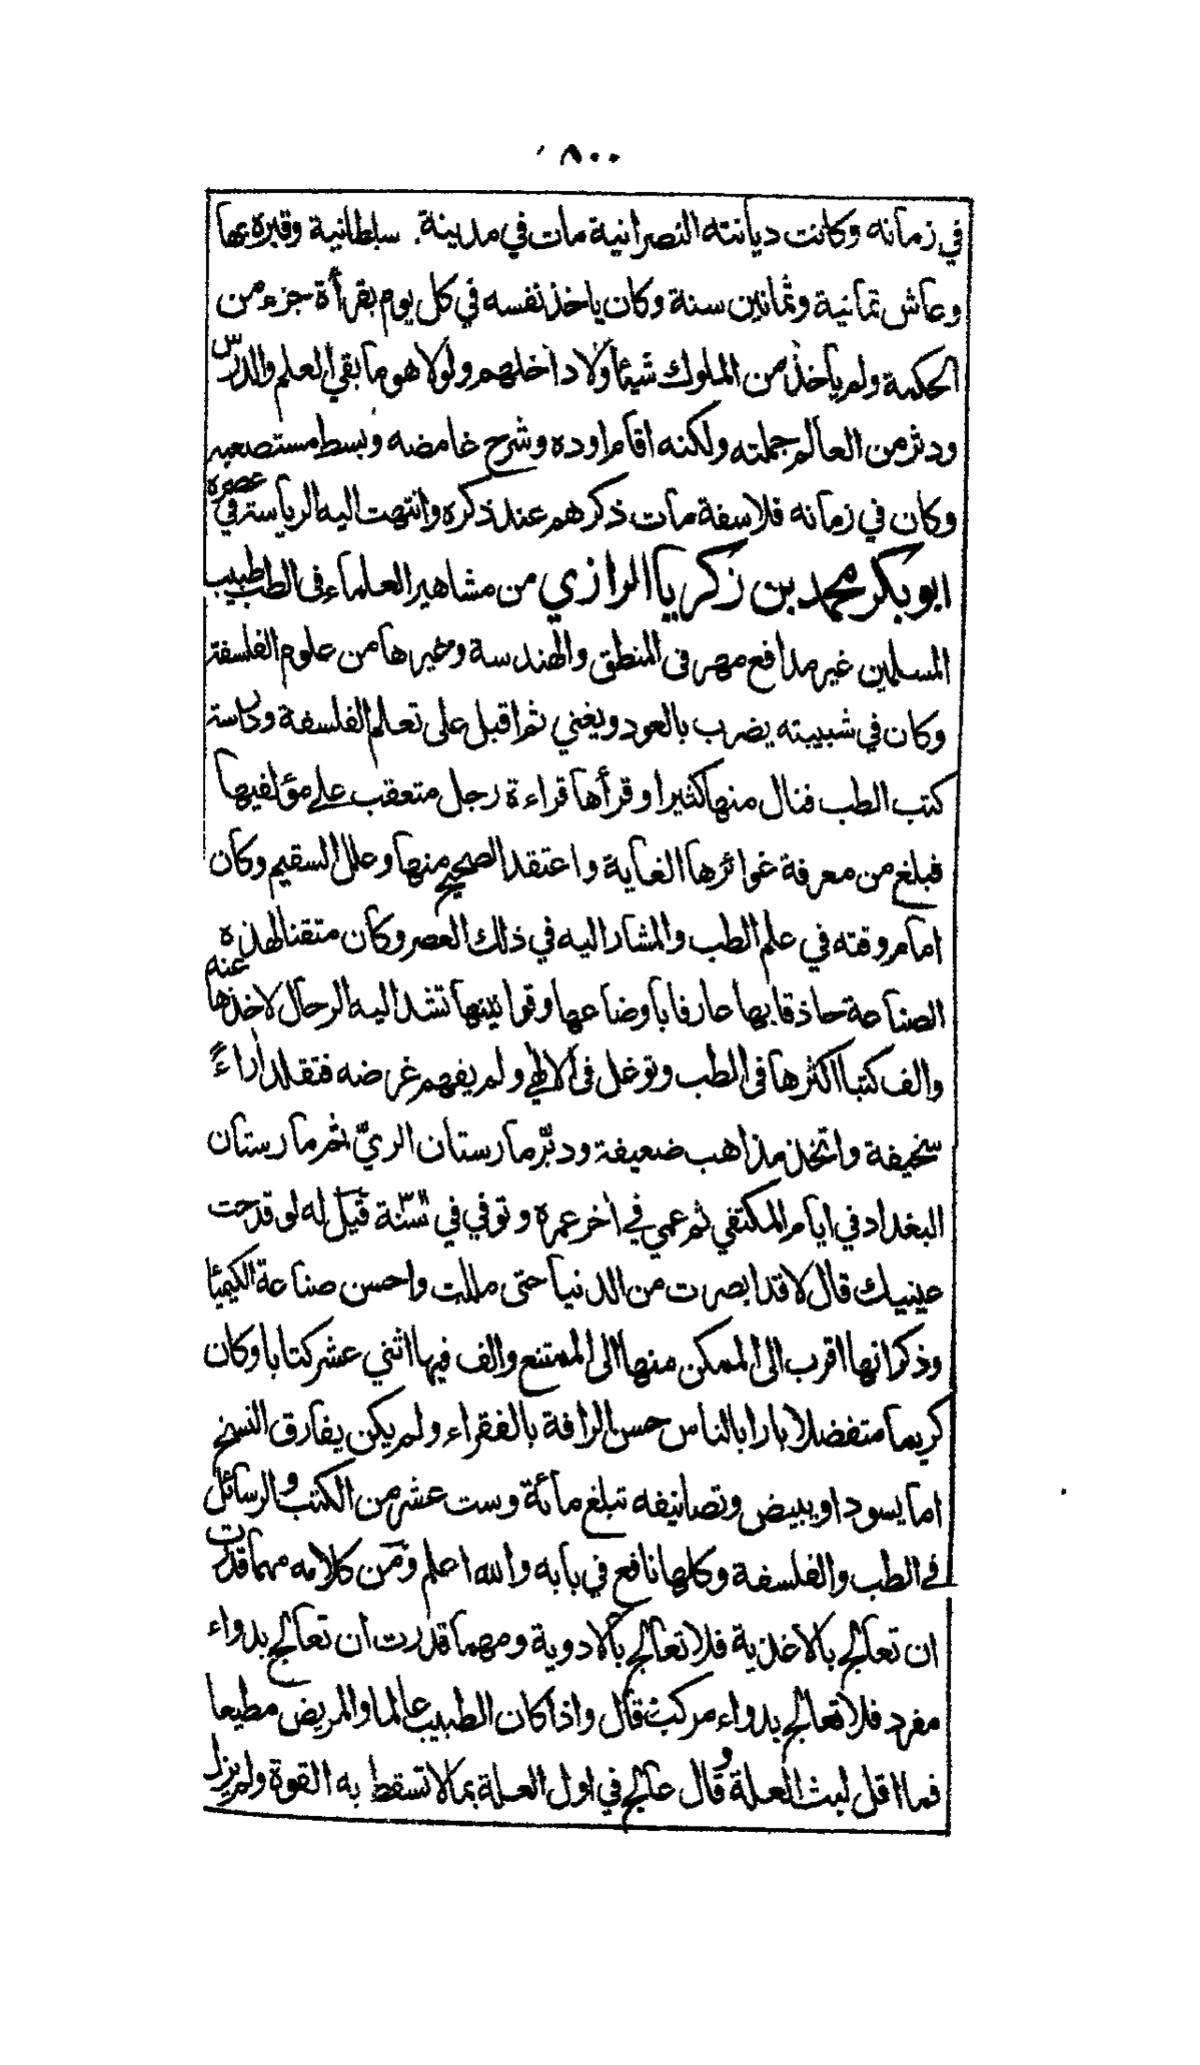 ٨٠٠
في زمانه وكانت ديانته النصرانية مات في مدينة سلطانية وقبره بها
وعاش ثمانية وثمانين سنة وكان ياخذ نفسه في كل يوم بقرأة جزء من
الحكمة ولم يأخذ من الملوك شيئا ولا داخلهم ولولا هو ما بقي العلم والدرس
ودثر من العالم جملته ولكنه اقام اوده وشرح غامضه وبسط مستصعبه
وكان في زمانه فلاسفة مات ذكرهم عند ذكره وانتهت اليه الرياسة في عصره
ابو بكر محمد بن زكريا الرازي من مشاهير العلماء في الطب طبيب
المسلمين غير مدافع مهر في المنطق والهندسة وغيرها من علوم الفلسفة
وكان في شبيبته يضرب بالعود ويغني ثم اقبل على تعالم الفلسفة ودراسة
كتب الطب فنال منها كثيرا وقرأها قراءة رجل متعقب على مؤلفيها
فبلغ من معرفة غوائرها الغاية واعتقد الصحيح منها وعلل السقيم وكان
امام وقته في علم الطب والمشار اليه في ذلك العصر وكان متقنا لهذه
الصناعة حاذقا بها عارفا باوضاعها وقوانينها تشد اليه الرحال لاخذها عنه
والف كتبا اكثرها في الطب وتوغل في الالهي ولم يفهم غرضه فتقلد اراءً
سخيفة واتخذ مذاهب ضعيفة ودبّر مارستان الريّ ثم مارستان
البغداد في ايام المكتفي ثم عمي في اخر عمره وتوفي في سنة قيل له لو قدحت
عينيك قال لا قد ابصرت من الدنيا حتى مللت واحسن صناعة الكيميا
وذكر انها اقرب الى الممكن منها الى الممتنع والف فيها اثني عشر كتابا وكان
كريما متفضلا بارا بالناس حسن الرافة بالفقراء ولم يكن يفارق النسخ
اما يسود او يبيض وتصانيفه تبلغ مائة وست عشر من الكتب والرسائل
في الطب والفلسفة وكلها نافع في بابه والله اعلم ومن كلامه مهما قدرت
ان تعالج بالاغذية فلا تعالج بالادوية ومهما قدرت ان تعالج بدواء
مفرد فلا تعالج بدواء مركب قال واذا كان الطبيب عالما والمريض مطيعا
فما اقل لبث العلة وقال عالج في اول العلة بما لا تسقط به القوة ولم يزل